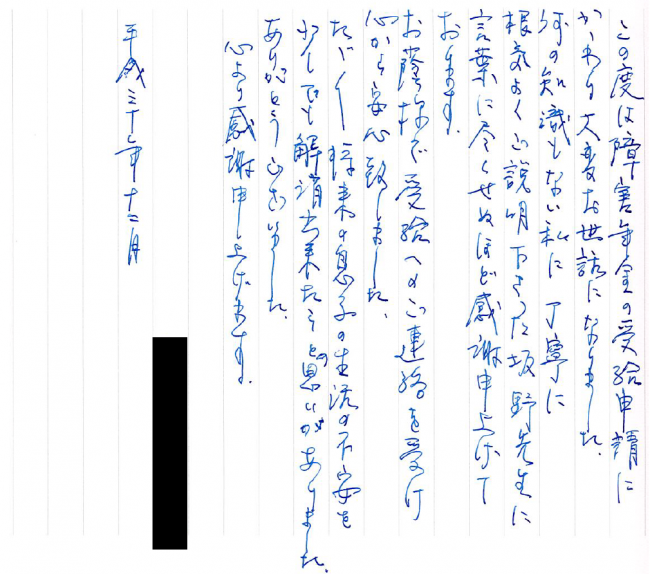 この度は障害年金の受給申請に
かかわり大変お世話になりました。
何の知識もない私に丁寧に
根気よくご説明下さった坂野先生に
言葉に尽くせぬほど感謝申上げて
おります。
お蔭様で受給へのご連絡を受け
心から安心致しました、
ただ 将来の息子の生活の不安を
少しでも解消出来たらとの思いがありました。
ありがとうございました。
心より感謝申し上げます。
平成三十年十二月